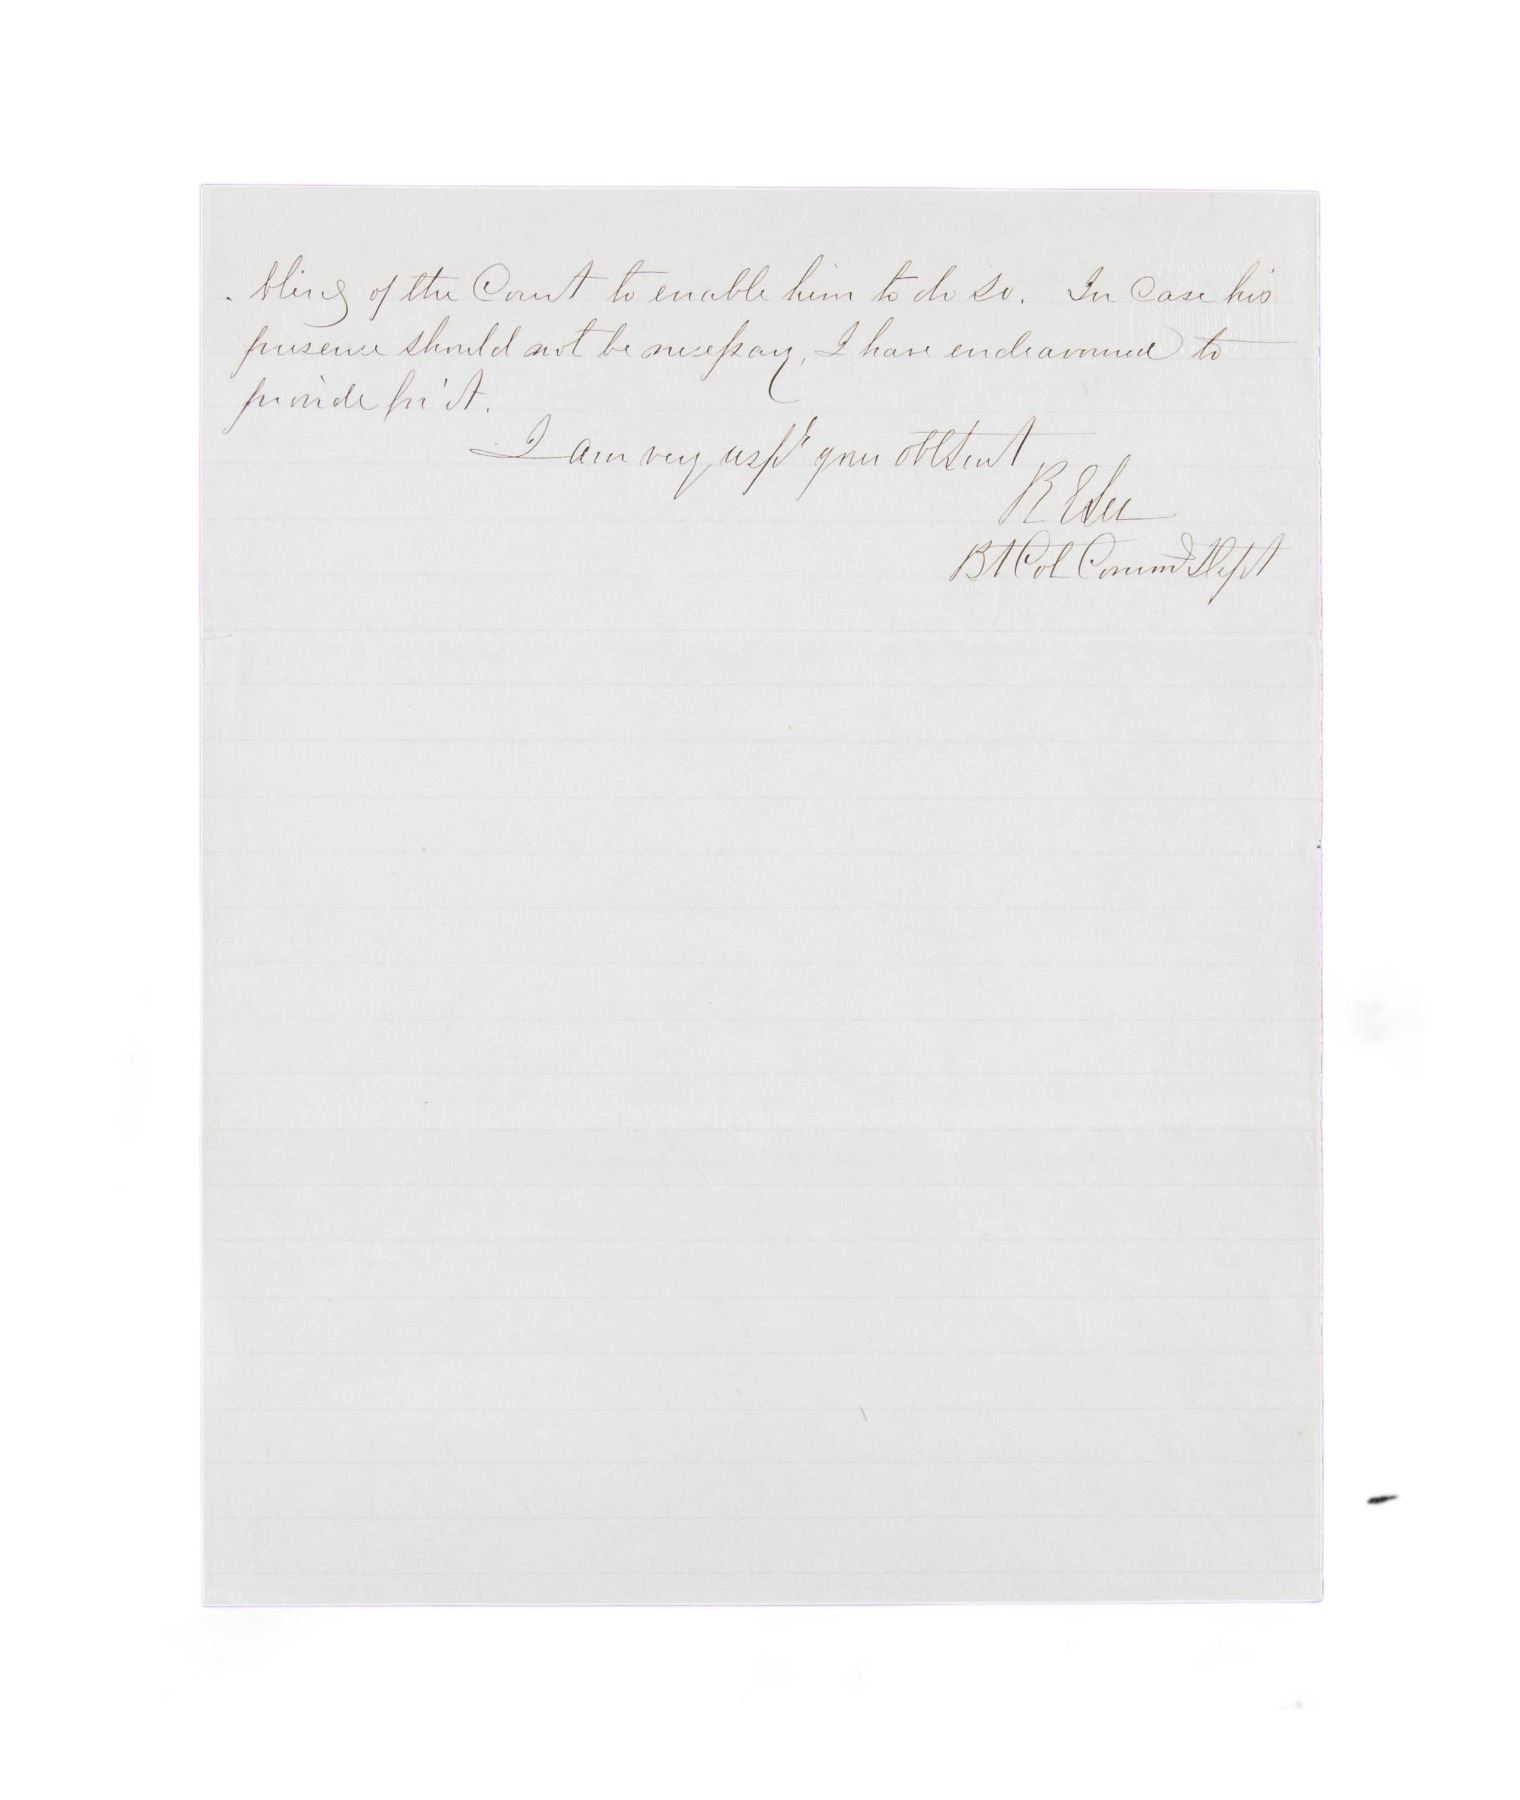 bling of the Court to enable him to do so. In Case his
presence should not be necessary, I have endeavoured to
provide for it.
I am very respy your obt Servt
R E Lee
Bt Col Commd Dept